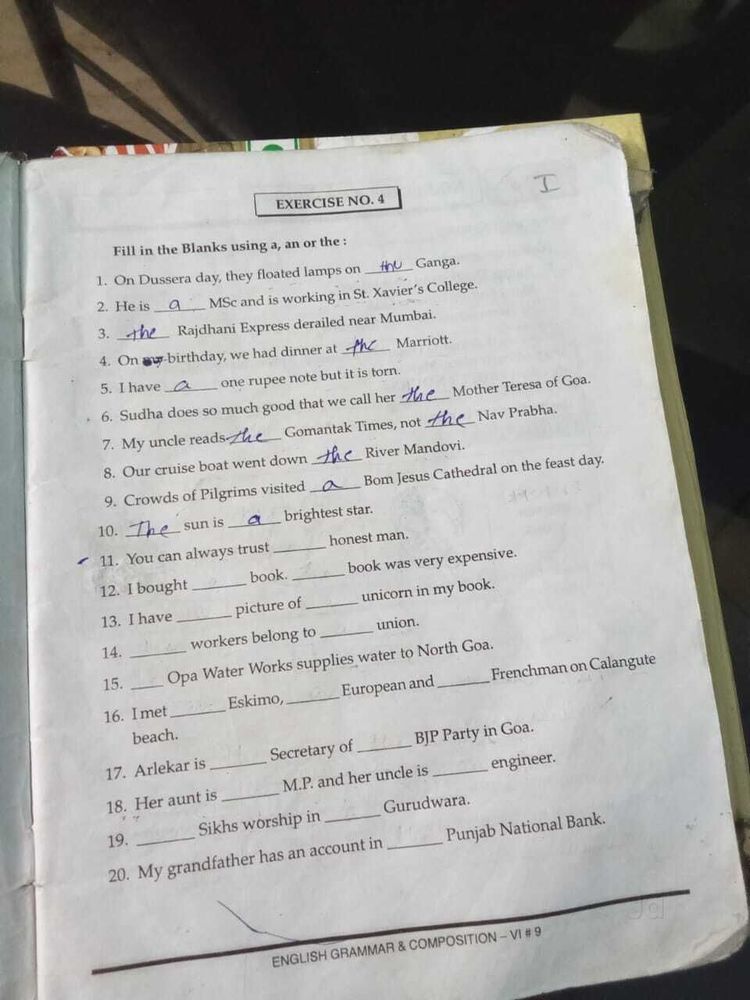 I
EXERCISE NO. 4
Fill in the Blanks using a, an or the :
1. On Dussera day, they floated lamps on the Ganga.
2. He is a MSc and is working in St. Xavier's College.
3. the Rajdhani Express derailed near Mumbai.
4. On birthday, we had dinner at the Marriott.
5. I have a one rupee note but it is torn.
6. Sudha does so much good that we call her the Mother Teresa of Goa.
7. My uncle reads the Gomantak Times, not the Nav Prabha.
8. Our cruise boat went down the River Mandovi.
9. Crowds of Pilgrims visited a Bom Jesus Cathedral on the feast day.
10. The sun is a brightest star.
11. You can always trust ______ honest man.
12. I bought ______ book. ______ book was very expensive.
13. I have ______ picture of ______ unicorn in my book.
14. ______ workers belong to ______ union.
15. ____ Opa Water Works supplies water to North Goa.
16. I met ______ Eskimo, ______ European and ______ Frenchman on Calangute
beach.
17. Arlekar is ______ Secretary of ______ BJP Party in Goa.
18. Her aunt is ______ M.P. and her uncle is ______ engineer.
19. ______ Sikhs worship in ______ Gurudwara.
20. My grandfather has an account in ______ Punjab National Bank.
Jd
ENGLISH GRAMMAR & COMPOSITION – VI # 9